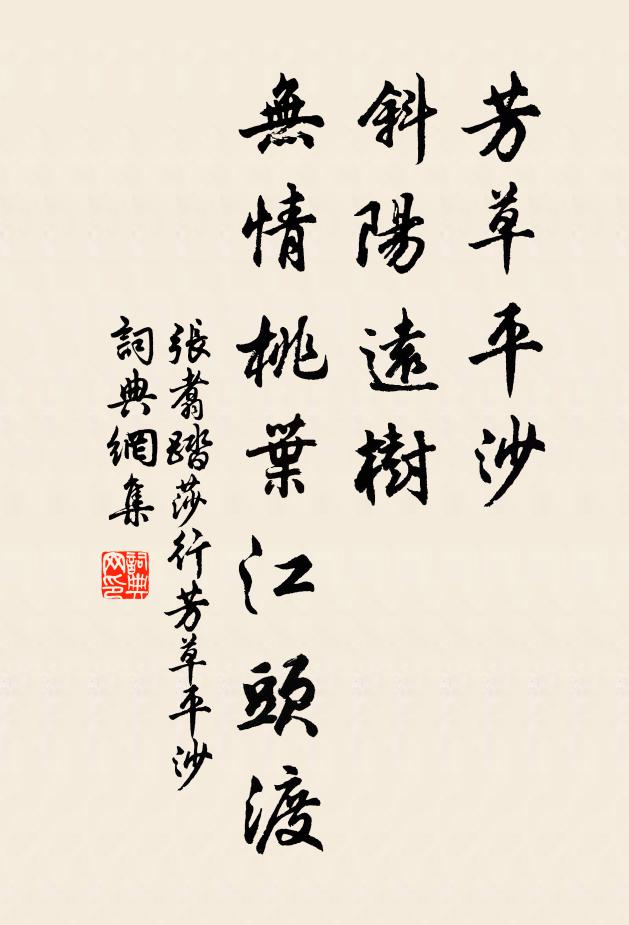 芳草平沙
斜陽遠樹
無情桃葉江頭渡
張翥踏莎行芳草平沙
詞典網集
詞典
网印